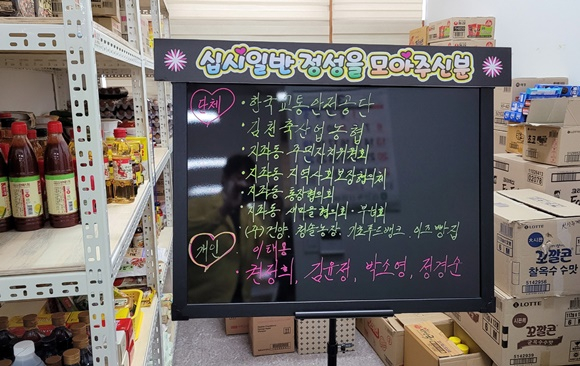 십시일반 정성을 모아주신분
단체
· 한국교통안전공단
· 김천축산업농협
· 지좌동 주민자치위원회
· 지좌동 지역사회보장협의체
· 지좌동 통장협의회
· 지좌동 새마을협의회·부녀회
· (주)건양. 청솔농장. 기초푸드뱅크. 이즈빵집
개인
이태용
권동희, 김윤정, 박소영, 정경순
LOTTE
꼬깔콘
찰옥수수맛
5142958
LOTTE
꼬깔콘